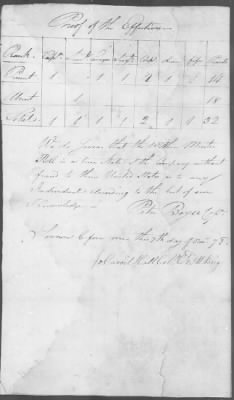 Proof of the Effectives
Rank Capt Corpl drum fife Privates
Present 1 1 1 1 1 14
Absent 1 18
Total 1 1 1 1 2 1 1 32
We do swear that the within Muster
Roll is a true State of the Company without
fraud to the United States or to any
Individual according to the best of our
Knowledge
Peter Capt
Sworn before me this 7th day of 78
David Hall Col